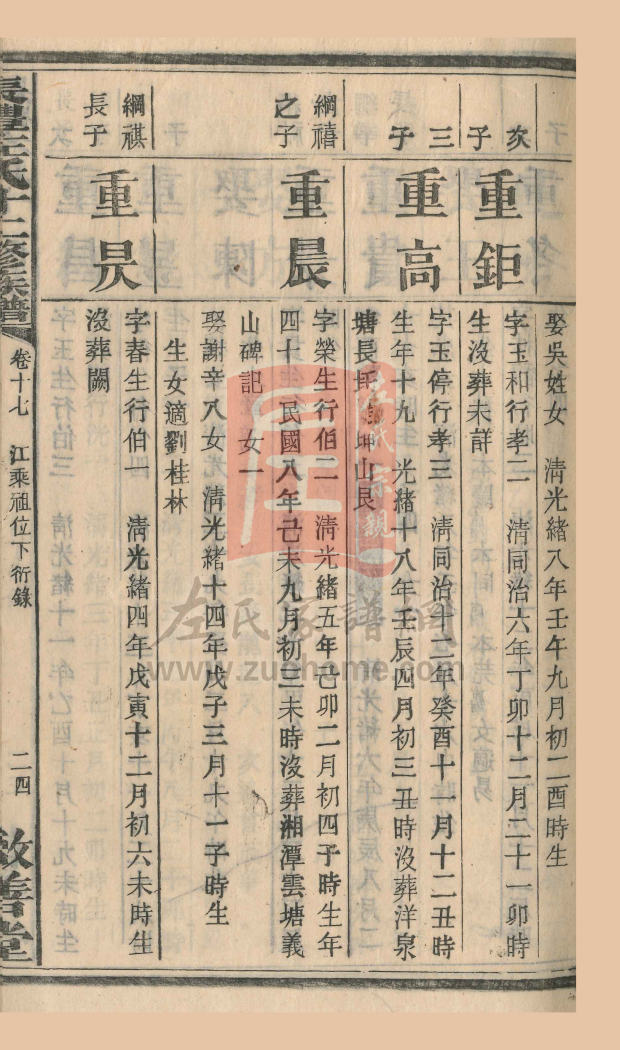 娶吳姓女　清光緒八年壬午九月初二酉時生
次子
重鉅
字玉和行孝二　清同治六年丁卯十二月二十一卯時
生沒葬未詳
三子
重高
字玉停行孝三　清同治十二年癸酉十一月十二丑時
生年十九　光緒十八年壬辰四月初三丑時沒葬洋泉
塘長 坤山艮
綱禧之子
重晨
字榮生行伯二　清光緒五年己卯二月初四子時生年
四十一民國八年己未九月初三未時沒葬湘潭雲塘義
山碑記　女一
娶謝辛八女　清光緒十四年戊子三月十一子時生
生女適劉桂林
綱祺長子
重炅
字春生行伯一　清光緒四年戊寅十二月初六未時生
沒葬闕
長豐左氏十二修族譜　卷十七　江乘祖位下衍錄　二四　敦善堂
左氏宗親
左氏家譜網
www.zuohome.com